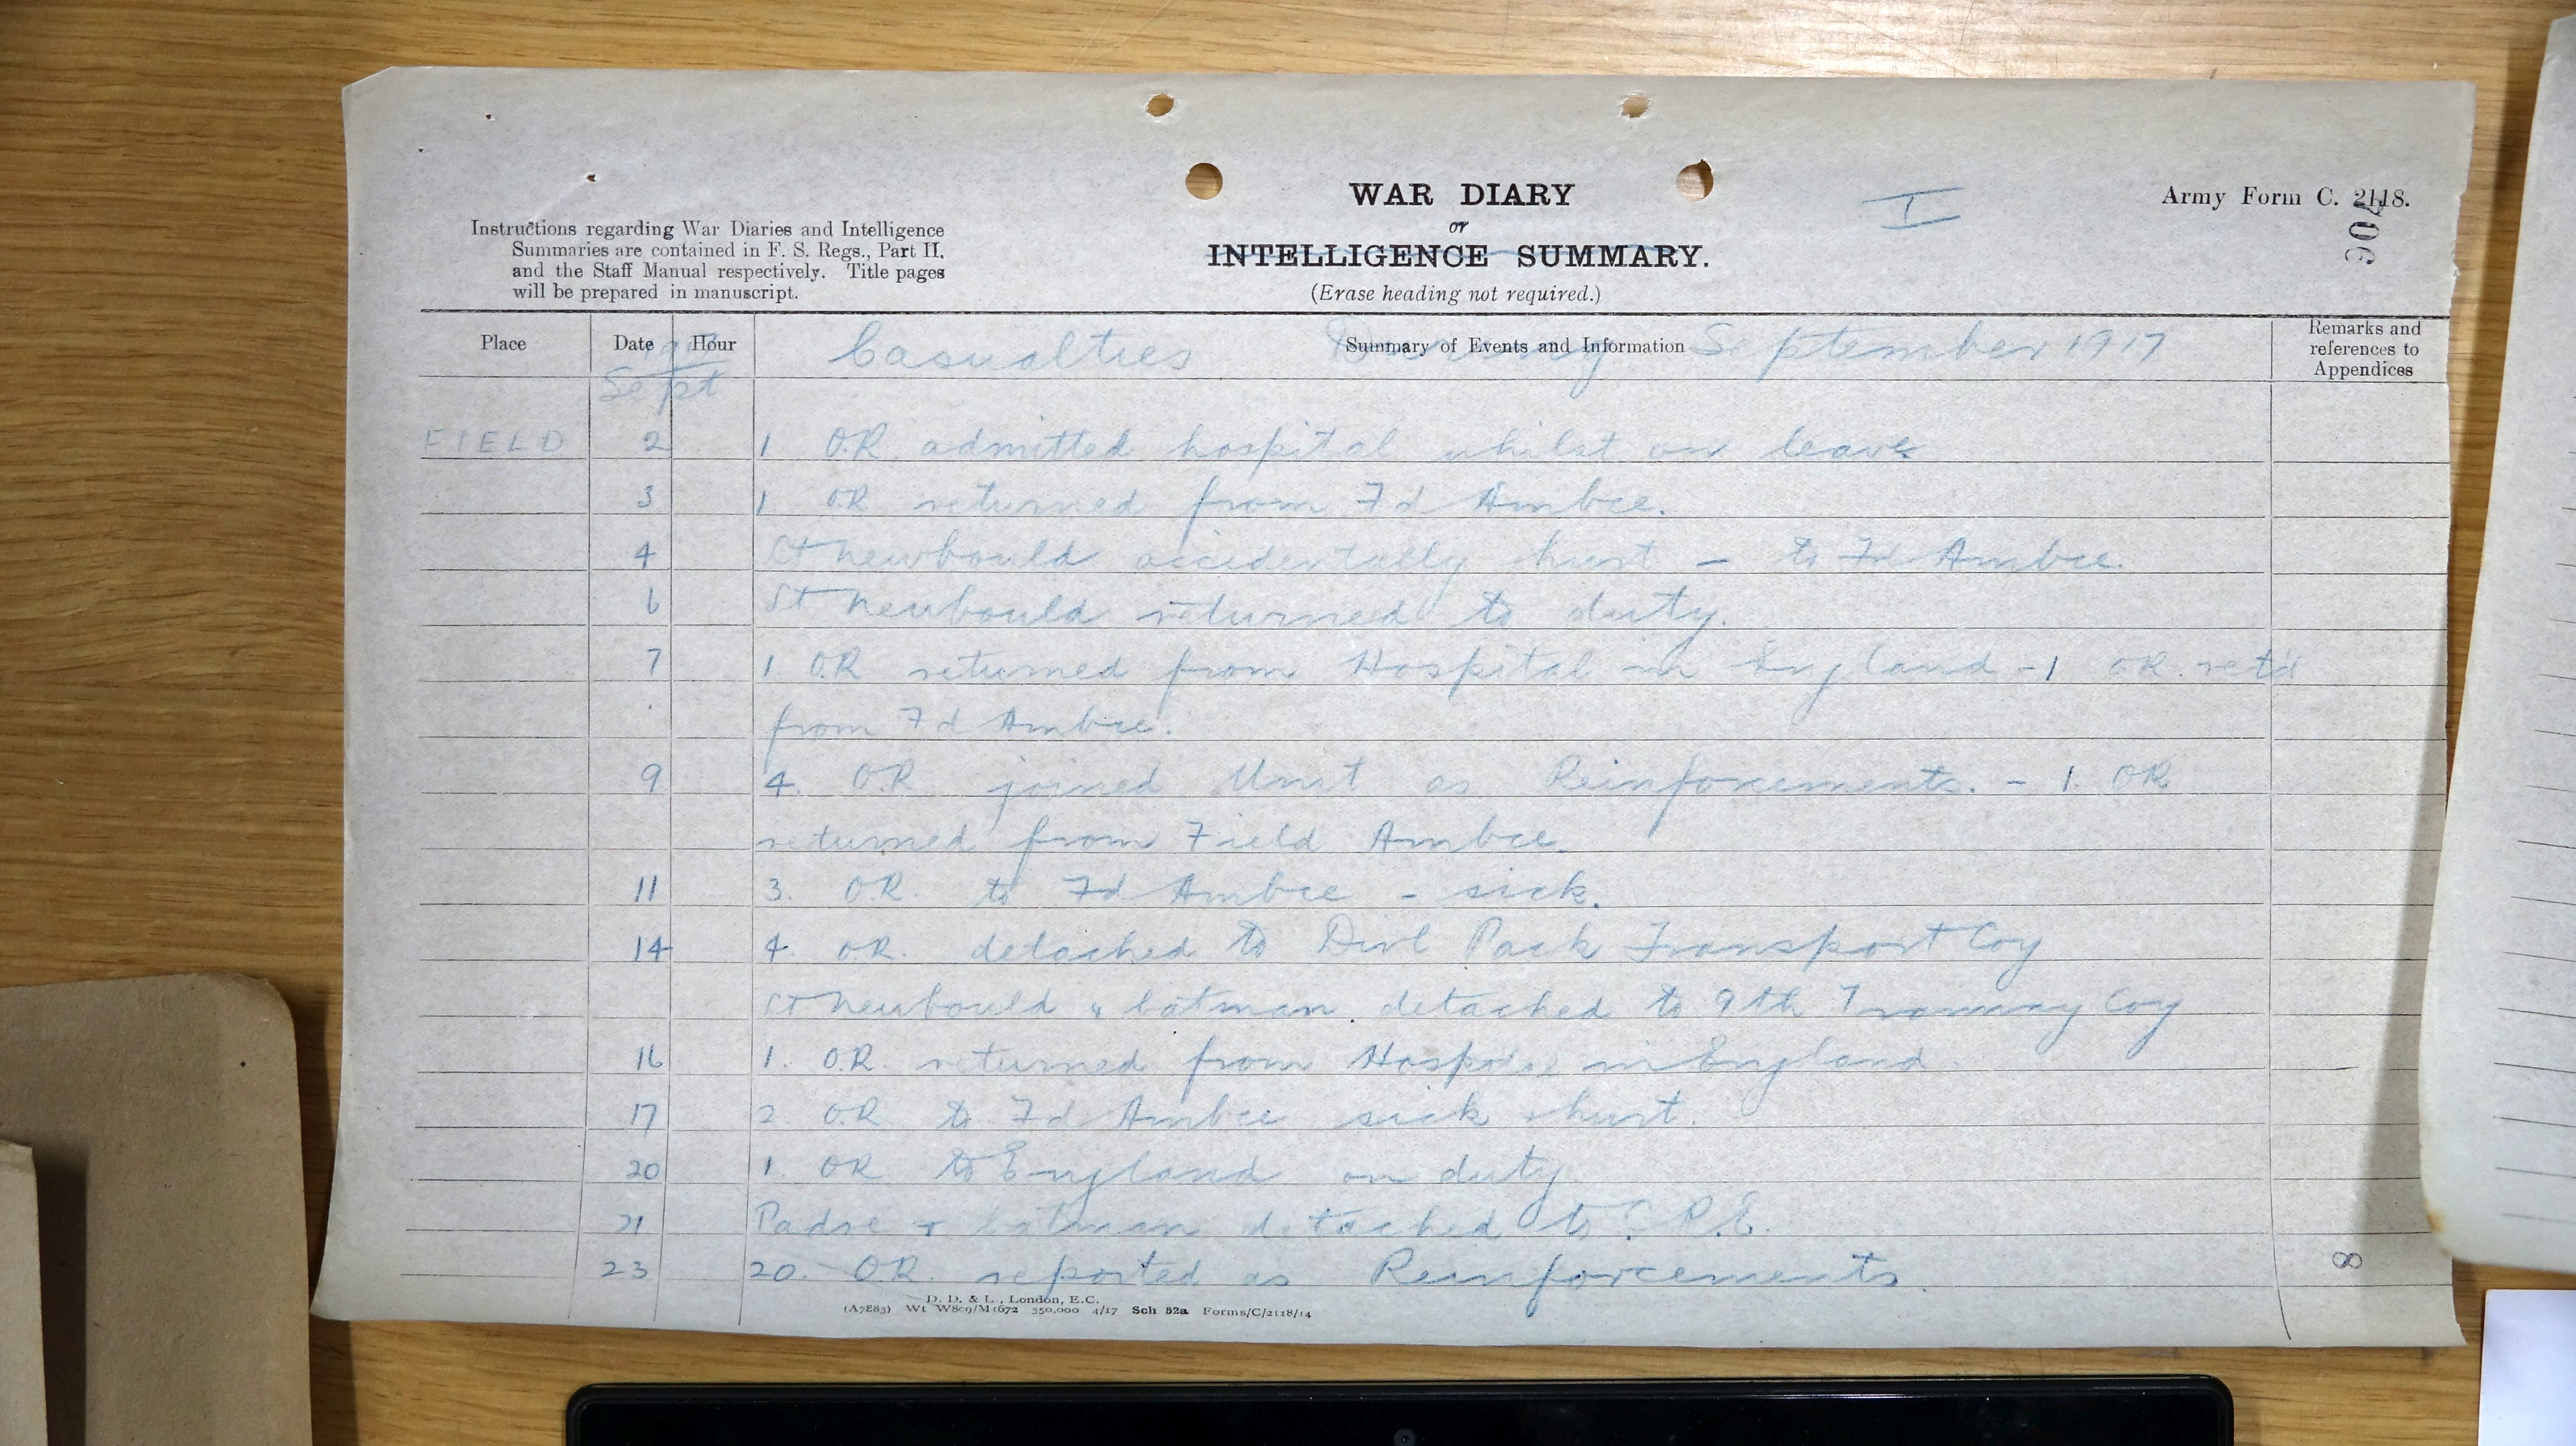 WAR DIARY
or
INTELLIGENCE SUMMARY.
(Erase heading not required.)
I
Army Form C. 2118.
Instructions regarding War Diaries and Intelligence
Summaries are contained in F. S. Regs., Part II,
and the Staff Manual respectively. Title pages
will be prepared in manuscript.
Place
Date
Hour
Summary of Events and Information
Remarks and
references to
Appendices
Casualties During September 1917
Sept
FIELD 2 1 OR admitted hospital whilst on leave
3 1 OR returned from Fd Ambce.
4 Lt Newbould accidentally hurt - to Fd Ambce.
6 Lt Newbould returned to duty.
7 1. OR returned from Hospital in England - 1 OR. retd
from Fd Ambce.
9 4. O.R joined Unit as Reinforcements. - 1. OR
returned from Field Ambce.
11 3. O.R. to Fd Ambce - sick.
14 4. O.R. detached to Divl Pack Transport Coy
Lt Newbould & batman detached to 9th Tramway Coy
16 1. O.R. returned from Hospital in England.
17 2. O.R to Fd Ambce sick & hurt.
20 1. OR to England on duty
21 Padre & batman detached to C.R.E.
23 20. O.R. reported as Reinforcements
8
D. D. & L., London, E.C.
(A7883) Wt W809/M1672 350,000 4/17 Sch 52a Forms/C/2118/14